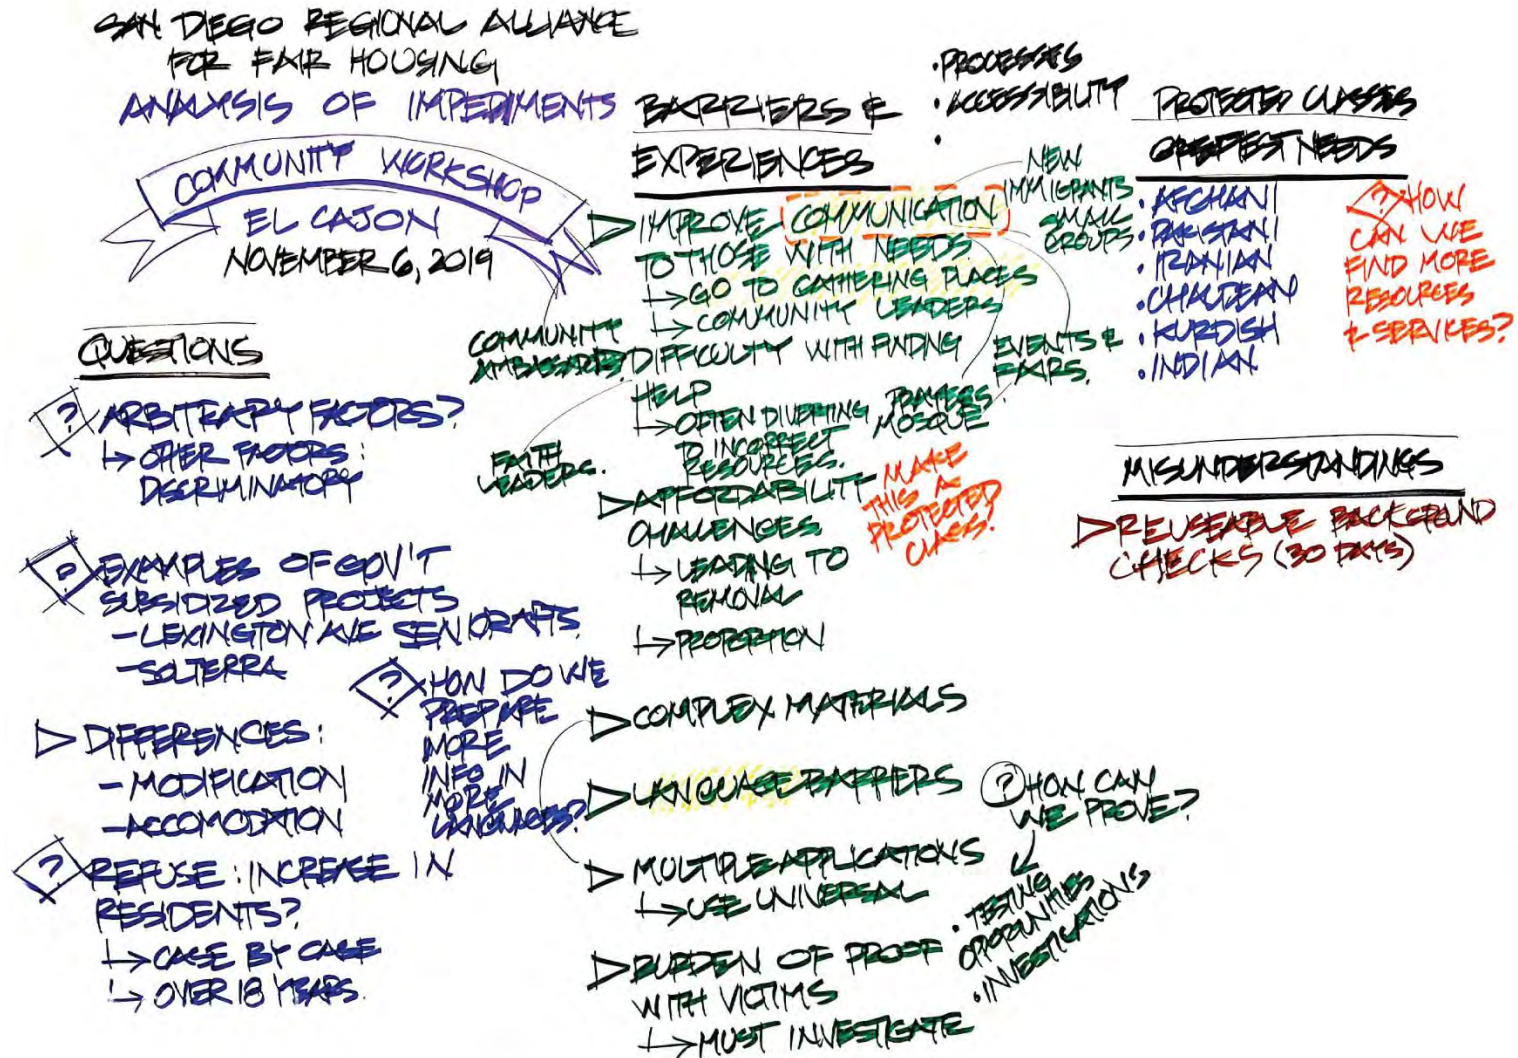 SAN DIEGO REGIONAL ALLIANCE
FOR FAIR HOUSING
ANALYSIS OF IMPEDIMENTS
COMMUNITY WORKSHOP
EL CAJON
NOVEMBER 6, 2019
QUESTIONS
? ARBITRARY FACTORS?
↳ OTHER FACTORS:
DISCRIMINATORY
? EXAMPLES OF GOV'T
SUBSIDIZED PROJECTS
- LEXINGTON AVE SENIOR APTS.
- SOLTERRA
▷ DIFFERENCES:
- MODIFICATION
- ACCOMODATION
? HOW DO WE
PREPARE
MORE
INFO IN
MORE
LANGUAGES?
? REFUSE: INCREASE IN
RESIDENTS?
↳ CASE BY CASE
↳ OVER 18 YEARS.
BARRIERS &
EXPERIENCES
• PROCESSES
• ACCESSIBILITY
•
▷ IMPROVE COMMUNICATION
TO THOSE WITH NEEDS
↳ GO TO GATHERING PLACES
↳ COMMUNITY LEADERS
NEW
IMMIGRANTS
SMALL
GROUPS
COMMUNITY
AMBASSADORS
EVENTS &
FAIRS.
PRAYERS
MOSQUE
FAITH
LEADERS.
DIFFICULTY WITH FINDING
HELP
↳ OFTEN DIVERTING
TO INCORRECT
RESOURCES.
▷ AFFORDABILITY
CHALLENGES
↳ LEADING TO
REMOVAL
↳ PROPORTION
MAKE
THIS A
PROTECTED
CLASS!
▷ COMPLEX MATERIALS
▷ LANGUAGE BARRIERS
▷ MULTIPLE APPLICATIONS
↳ USE UNIVERSAL
▷ BURDEN OF PROOF
WITH VICTIMS
↳ MUST INVESTIGATE
? HOW CAN
WE PROVE?
• TESTING
OPPORTUNITIES
• INVESTIGATIONS
PROTECTED CLASSES
GREATEST NEEDS
• AFGHANI
• PAKISTANI
• IRANIAN
• CHALDEAN
• KURDISH
• INDIAN
? HOW
CAN WE
FIND MORE
RESOURCES
& SERVICES?
MISUNDERSTANDINGS
▷ REUSEABLE BACKGROUND
CHECKS (30 DAYS)